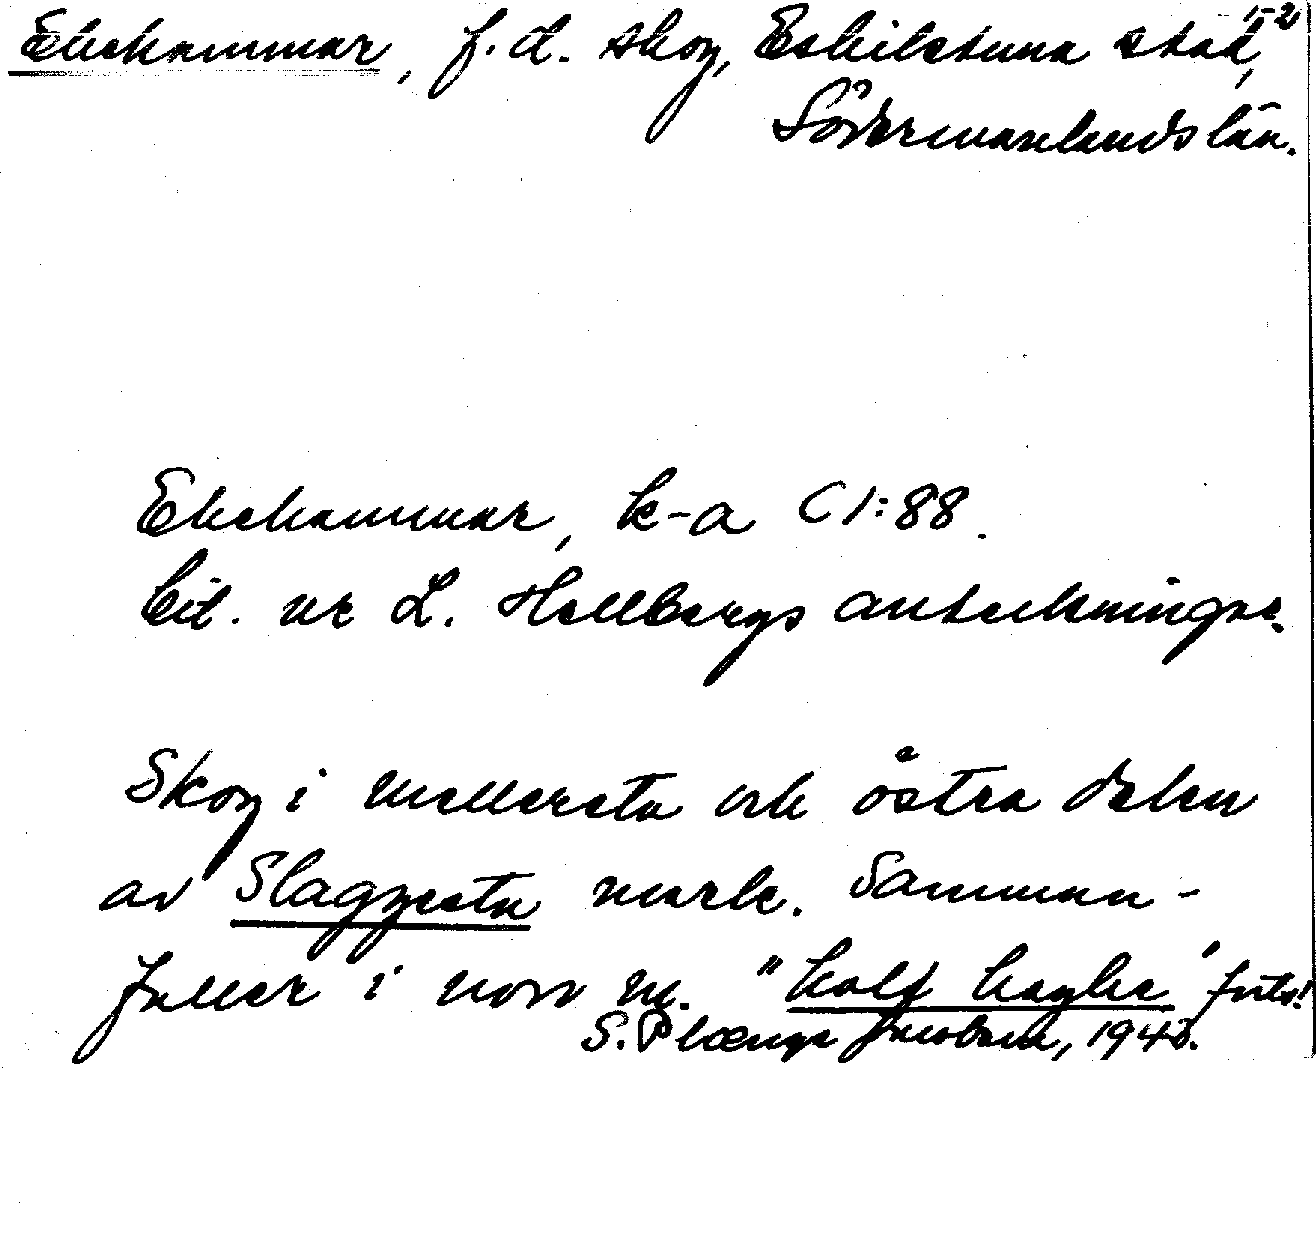 Ekehammar, f.d. skog, Eskilstuna stad,
Södermanlands län.
Ekehammar, k-a C 1:88.
Cit. ur L. Hellbergs anteckningar.
Skog i mellersta och östra delen
av Slagsta mark. Samman-
faller i norr m. "
S. 1945.